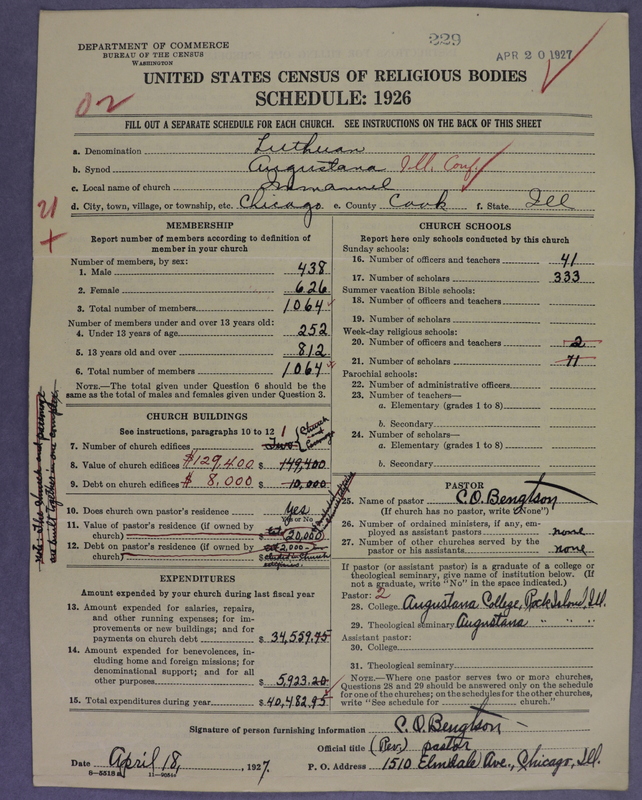 229
APR 20 1927
DEPARTMENT OF COMMERCE
BUREAU OF THE CENSUS
WASHINGTON
UNITED STATES CENSUS OF RELIGIOUS BODIES
SCHEDULE: 1926
02
FILL OUT A SEPARATE SCHEDULE FOR EACH CHURCH. SEE INSTRUCTIONS ON THE BACK OF THIS SHEET
a. Denomination Lutheran
b. Synod Augustana Ill. Conf.
c. Local name of church Immanuel
d. City, town, village, or township, etc. Chicago e. County Cook f. State Ill
21
+
MEMBERSHIP
Report number of members according to definition of
member in your church
Number of members, by sex:
1. Male 438
2. Female 626
3. Total number of members 1064
Number of members under and over 13 years old:
4. Under 13 years of age 252
5. 13 years old and over 812
6. Total number of members 1064
NOTE.—The total given under Question 6 should be the
same as the total of males and females given under Question 3.
CHURCH BUILDINGS
See instructions, paragraphs 10 to 12
7. Number of church edifices Two 1 Church and Parsonage
8. Value of church edifices $129,400 $ 149,400
9. Debt on church edifices $ 8,000 $ 10,000
10. Does church own pastor's residence Yes
Yes or No
11. Value of pastor's residence (if owned by
church) $ 20,000
12. Debt on pastor's residence (if owned by
church) $ 2,000
Note: The Church and parsonage
are built together in one complex.
EXPENDITURES
Amount expended by your church during last fiscal year
13. Amount expended for salaries, repairs,
and other running expenses; for im-
provements or new buildings; and for
payments on church debt $ 34,559.75
14. Amount expended for benevolences, in-
cluding home and foreign missions; for
denominational support; and for all
other purposes $ 5,923.20
15. Total expenditures during year $ 40,482.95
CHURCH SCHOOLS
Report here only schools conducted by this church
Sunday schools:
16. Number of officers and teachers 41
17. Number of scholars 333
Summer vacation Bible schools:
18. Number of officers and teachers
19. Number of scholars
Week-day religious schools:
20. Number of officers and teachers 2
21. Number of scholars 71
Parochial schools:
22. Number of administrative officers
23. Number of teachers—
a. Elementary (grades 1 to 8)
b. Secondary
24. Number of scholars—
a. Elementary (grades 1 to 8)
b. Secondary
PASTOR
25. Name of pastor C. O. Bengtson
(If church has no pastor, write "None")
26. Number of ordained ministers, if any, em-
ployed as assistant pastors none
27. Number of other churches served by the
pastor or his assistants none
If pastor (or assistant pastor) is a graduate of a college or
theological seminary, give name of institution below. (If
not a graduate, write "No" in the space indicated.)
Pastor: 2
28. College Augustana College, Rock Island, Ill.
29. Theological seminary Augustana " " "
Assistant pastor:
30. College
31. Theological seminary
NOTE.—Where one pastor serves two or more churches,
Questions 28 and 29 should be answered only on the schedule
for one of the churches; on the schedules for the other churches,
write "See schedule for church."
Signature of person furnishing information C. O. Bengtson
Official title (Rev.) pastor
Date April 18, 1927.
P. O. Address 1510 Elmdale Ave., Chicago, Ill.
8-5518a